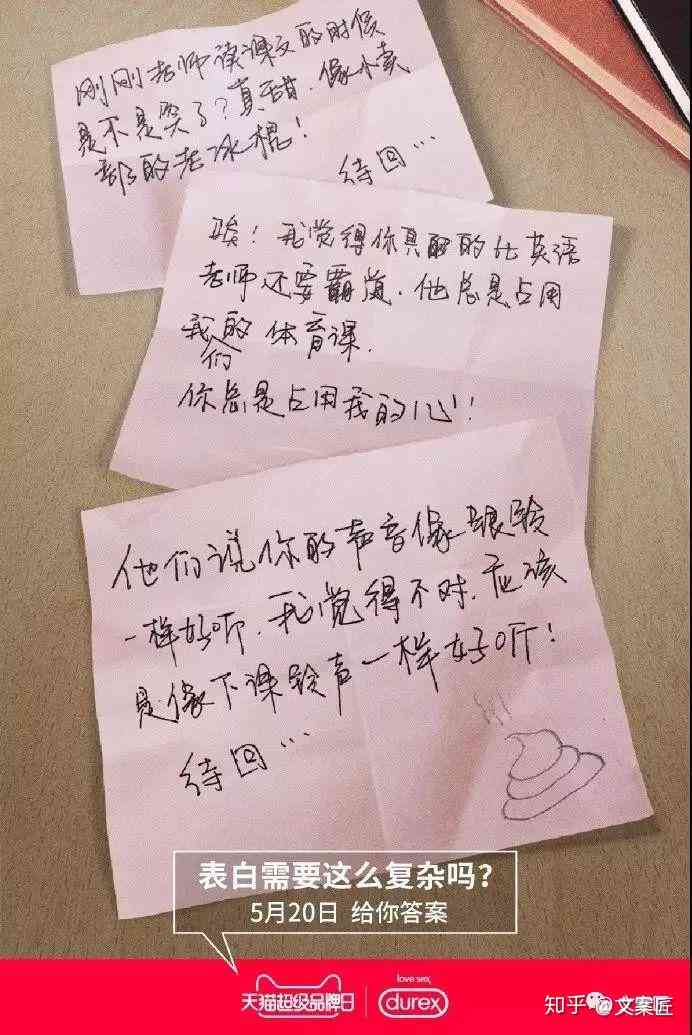 刚刚老师读课文的时候
是不是笑了？真甜.像小卖
部的老冰棍！
待回…
！我觉得你真的比英语
老师还要霸道.他总是占用
我们的体育课.
你总是占用我的心！
他们说你的声音像银铃
一样好听.我觉得不对.应该
是像下课铃声一样好听！
待回…
表白需要这么复杂吗？
5月20日 给你答案
天猫超级品牌日
love sex,
durex
知乎 @文案匠